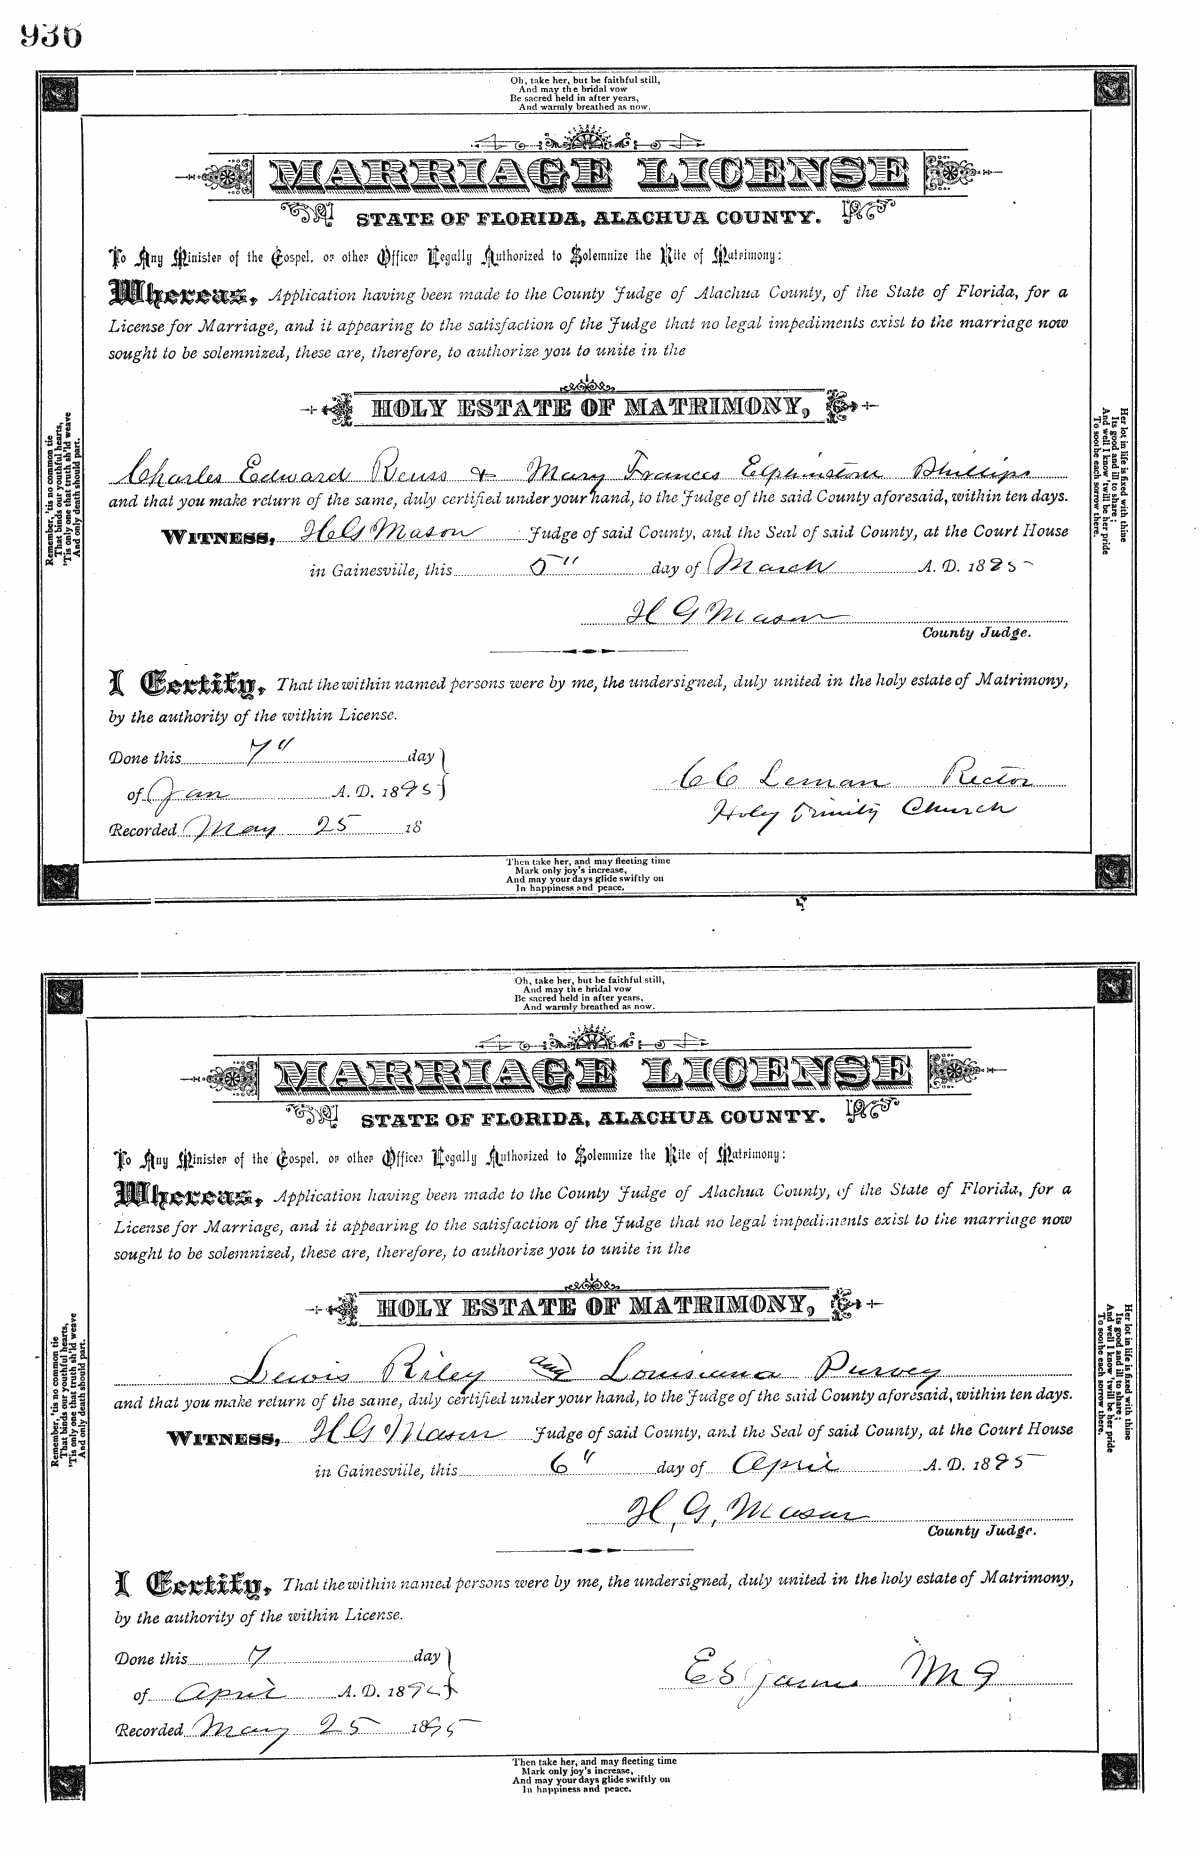 936
Oh, take her, but be faithful still,
And may the bridal vow
Be sacred held in after years,
And warmly breathed as now.
MARRIAGE LICENSE
STATE OF FLORIDA, ALACHUA COUNTY.
To Any Minister of the Gospel, or other Officer Legally Authorized to Solemnize the Rite of Matrimony:
Whereas, Application having been made to the County Judge of Alachua County, of the State of Florida, for a
License for Marriage, and it appearing to the satisfaction of the Judge that no legal impediments exist to the marriage now
sought to be solemnized, these are, therefore, to authorize you to unite in the
HOLY ESTATE OF MATRIMONY,
Charles Edward Reuss & Mary Frances Elphinstone Phillips
and that you make return of the same, duly certified under your hand, to the Judge of the said County aforesaid, within ten days.
WITNESS, H G Mason Judge of said County, and the Seal of said County, at the Court House
in Gainesville, this 5" day of March A. D. 1895
H G Mason
County Judge.
I Certify, That the within named persons were by me, the undersigned, duly united in the holy estate of Matrimony,
by the authority of the within License.
Done this 7" day
of Jan A. D. 1895
C C Leman Rector
Holy Trinity Church
Recorded May 25 18
Remember, 'tis no common tie
That binds our youthful hearts,
'Tis only one that truth sh'ld weave
And only death should part.
Her lot in life is fixed with thine
Its good and ill to share;
And well I know 'twill be her pride
To soothe each sorrow there.
Then take her, and may fleeting time
Mark only joy's increase,
And may your days glide swiftly on
In happiness and peace.
Oh, take her, but be faithful still,
And may the bridal vow
Be sacred held in after years,
And warmly breathed as now.
MARRIAGE LICENSE
STATE OF FLORIDA, ALACHUA COUNTY.
To Any Minister of the Gospel, or other Officer Legally Authorized to Solemnize the Rite of Matrimony:
Whereas, Application having been made to the County Judge of Alachua County, of the State of Florida, for a
License for Marriage, and it appearing to the satisfaction of the Judge that no legal impediments exist to the marriage now
sought to be solemnized, these are, therefore, to authorize you to unite in the
HOLY ESTATE OF MATRIMONY,
Lewis Riley and Louisiana Purvey
and that you make return of the same, duly certified under your hand, to the Judge of the said County aforesaid, within ten days.
WITNESS, H G Mason Judge of said County, and the Seal of said County, at the Court House
in Gainesville, this 6" day of April A. D. 1895
H, G, Mason
County Judge.
I Certify, That the within named persons were by me, the undersigned, duly united in the holy estate of Matrimony,
by the authority of the within License.
Done this 7 day
of April A. D. 1895
E S M G
Recorded May 25 1895
Remember, 'tis no common tie
That binds our youthful hearts,
'Tis only one that truth sh'ld weave
And only death should part.
Her lot in life is fixed with thine
Its good and ill to share;
And well I know 'twill be her pride
To soothe each sorrow there.
Then take her, and may fleeting time
Mark only joy's increase,
And may your days glide swiftly on
In happiness and peace.